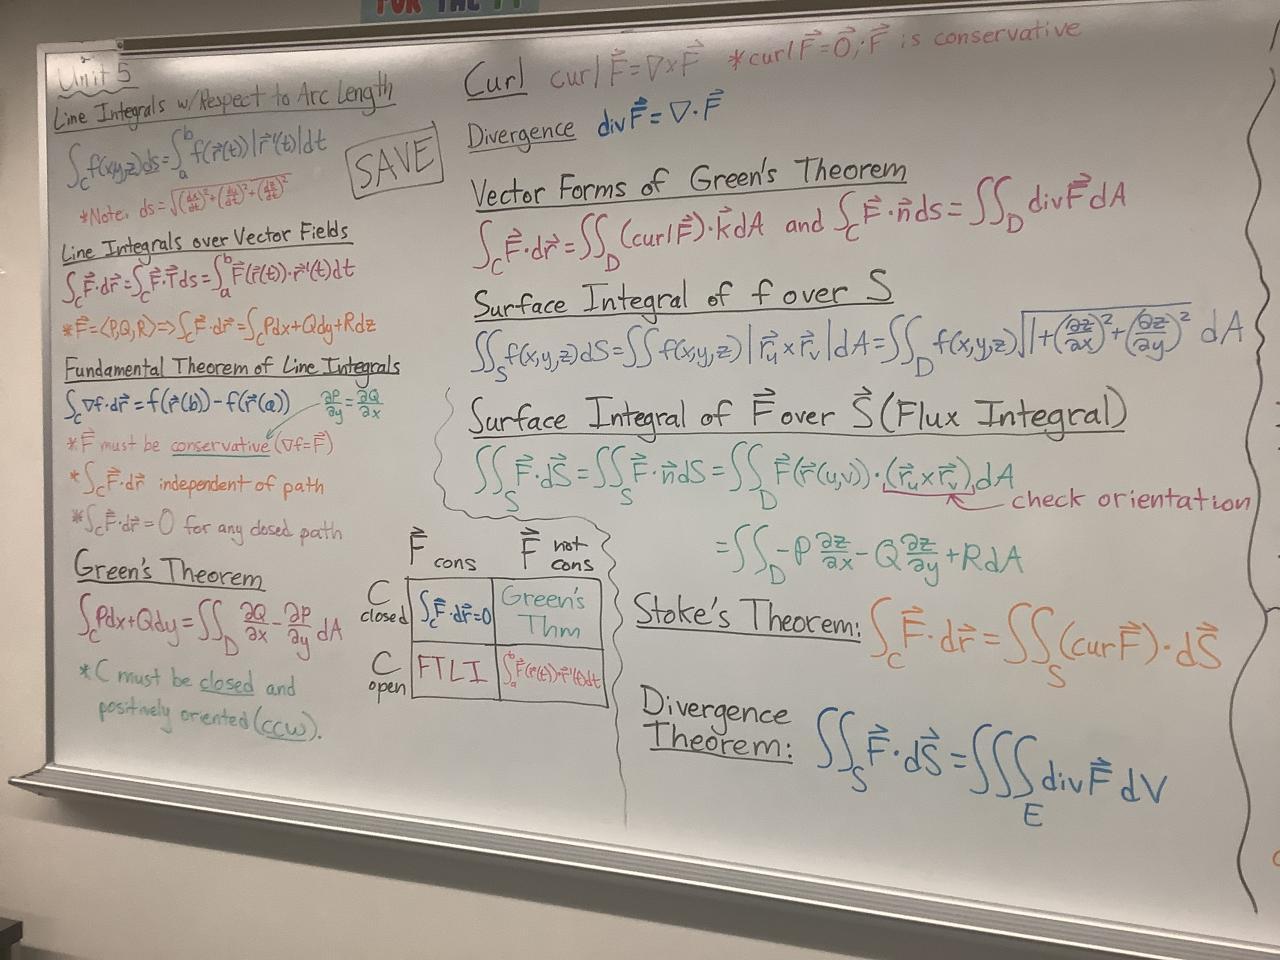 FOR THE
Unit 5
Line Integrals w/Respect to Arc Length
∫_C f(x,y,z)ds = ∫_a^b f(r⃗(t))|r⃗'(t)|dt
SAVE
*Note, ds = √((dx/dt)² + (dy/dt)² + (dz/dt)²)
Line Integrals over Vector Fields
∫_C F⃗·dr⃗ = ∫_C F⃗·T⃗ds = ∫_a^b F⃗(r⃗(t))·r⃗'(t)dt
*F⃗=⟨P,Q,R⟩ => ∫_C F⃗·dr⃗ = ∫_C Pdx+Qdy+Rdz
Fundamental Theorem of Line Integrals
∫_C ∇f·dr⃗ = f(r⃗(b)) - f(r⃗(a)) ∂P/∂y = ∂Q/∂x
*F⃗ must be conservative (∇f=F⃗)
*∫_C F⃗·dr⃗ independent of path
*∫_C F⃗·dr⃗ = 0 for any closed path
Green's Theorem
∫_C Pdx+Qdy = ∬_D ∂Q/∂x - ∂P/∂y dA
*C must be closed and
positively oriented (ccw).
F⃗ cons F⃗ not cons
C closed ∫_C F⃗·dr⃗=0 Green's Thm
C open FTLI ∫_a^b F⃗(r⃗(t))·r⃗'(t)dt
Curl curl F⃗ = ∇×F⃗ *curl F⃗ = 0⃗, F⃗ is conservative
Divergence div F⃗ = ∇·F⃗
Vector Forms of Green's Theorem
∫_C F⃗·dr⃗ = ∬_D (curl F⃗)·k⃗ dA and ∫_C F⃗·n⃗ ds = ∬_D div F⃗ dA
Surface Integral of f over S
∬_S f(x,y,z)dS = ∬ f(x,y,z)|r⃗_u × r⃗_v|dA = ∬_D f(x,y,z)√(1+(∂z/∂x)²+(∂z/∂y)²) dA
Surface Integral of F⃗ over S⃗ (Flux Integral)
∬_S F⃗·dS⃗ = ∬_S F⃗·n⃗ dS = ∬_D F⃗(r⃗(u,v))·(r⃗_u × r⃗_v)dA
check orientation
= ∬_D -P ∂z/∂x - Q ∂z/∂y + R dA
Stoke's Theorem: ∫_C F⃗·dr⃗ = ∬_S (curF⃗)·dS⃗
Divergence
Theorem: ∬_S F⃗·dS⃗ = ∭_E div F⃗ dV